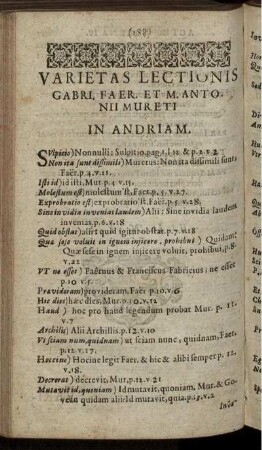 (188)
VARIETAS LECTIONIS
GABRI, FAER. ET M. ANTO-
NII MURETI
IN ANDRIAM.
SVlpitio) Nonnulli: Sulpitio. pag. 1. l. 11 & p. 2. v. 2
Non ita sunt dissimili) Muretus: Non ita dissimili sunt.
Faer. p. 4. v. 11.
Isti id) id isti. Mur. p. 4 v. 15.
Molestum est) molestum 'st. Faer. p. 5. v. 27.
Exprobratio est) exprobratio 'st. Faer. p. 5. v. 28.
Sine invidia invenias laudem) Alii: Sine invidia laudem
invenias. p. 6. v. 18
Quid obstat) alser: quid igitur obstat. p. 7. v. 18
Qua sese voluit in ignem injicere, prohibui) Quidam:
Quæ sese in ignem injicere voluit, prohibui, p. 8.
v. 22
VT ne esset) Faërnus & Franciscus Fabricius: ne esset
p. 10 v. 5.
Prævidaram) provideram. Faër p. 10. v. 6
Hic dies) hæc dies. Mur. p. 10. v. 12
Haud) hoc pro haud legendum probat Mur. p. 11.
v. 7
Archilis) Alii Archillis. p. 12. v. 10
Vi sciam num, quidnam) ut sciam nunc, quidnam, Faer.
p. 12. v. 17.
Hoccine) Hocine legit Faer. & hic & alibi semper p. 12.
v. 18.
Decrerat) decrevit, Mur. p. 12. v. 21
Mutavit id, quoniam) Id mutavit, quoniam. Mur. & Go-
quidam alii: Id mutavit, quia. p. 13. v. 2